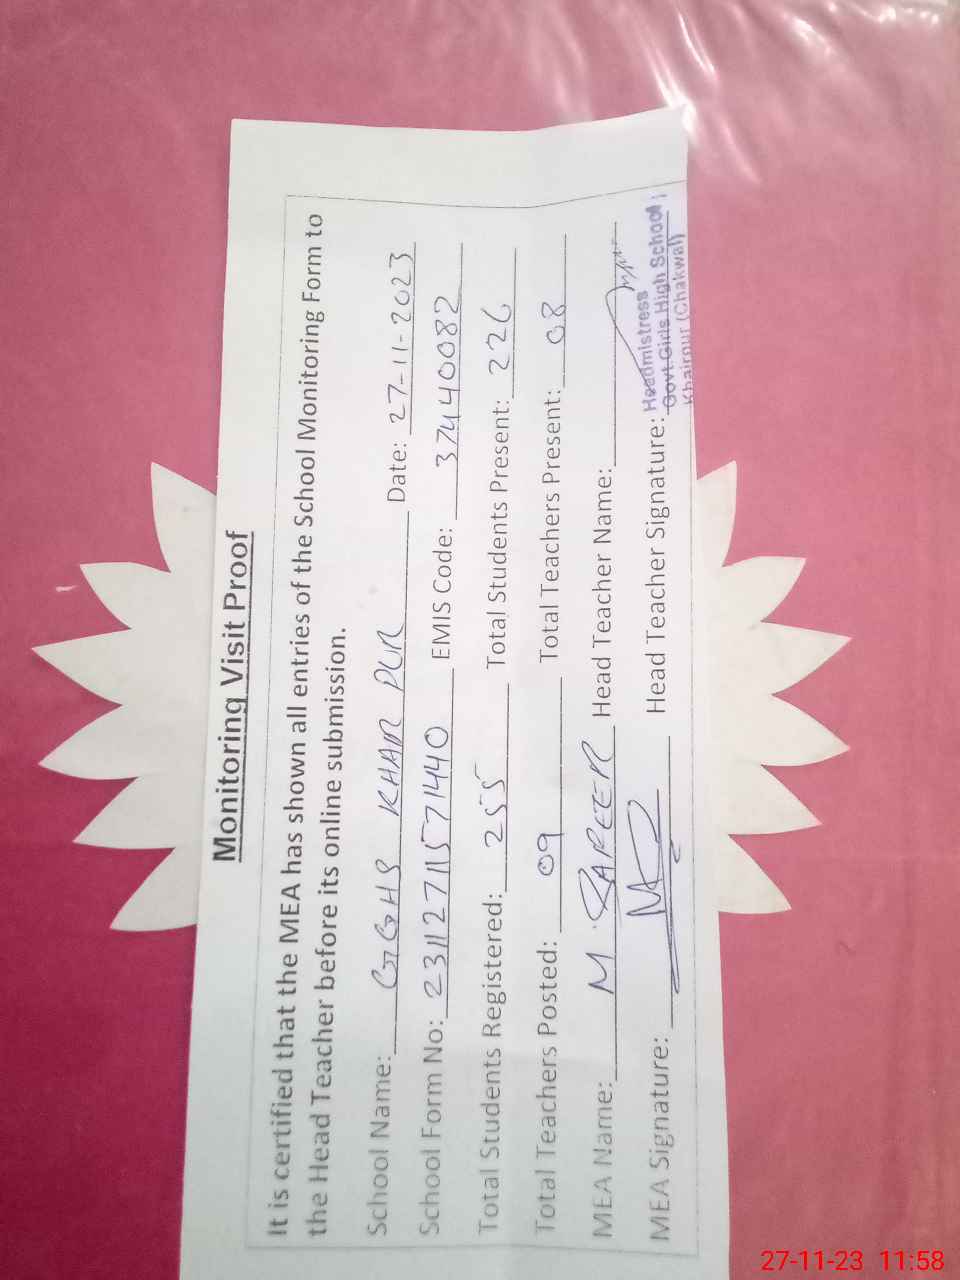 Monitoring Visit Proof
It is certified that the MEA has shown all entries of the School Monitoring Form to
the Head Teacher before its online submission.
School Name: GGHS KHAIR PUR Date: 27-11-2023
School Form No: 23112711571440 EMIS Code: 37440082
Total Students Registered: 255 Total Students Present: 226
Total Teachers Posted: 09 Total Teachers Present: 08
MEA Name: M. SAFEER Head Teacher Name:
MEA Signature: Head Teacher Signature:
Headmistress
Govt Girls High School
Khairpur (Chakwal)
27-11-23 11:58